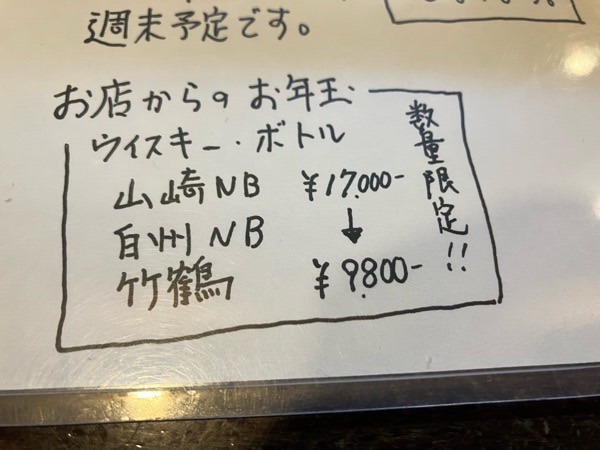 週末予定です。
お店からのお年玉
数量限定!!
ウィスキー・ボトル
山崎NB ¥17,000-
白州NB ↓
竹鶴 ¥9,800-